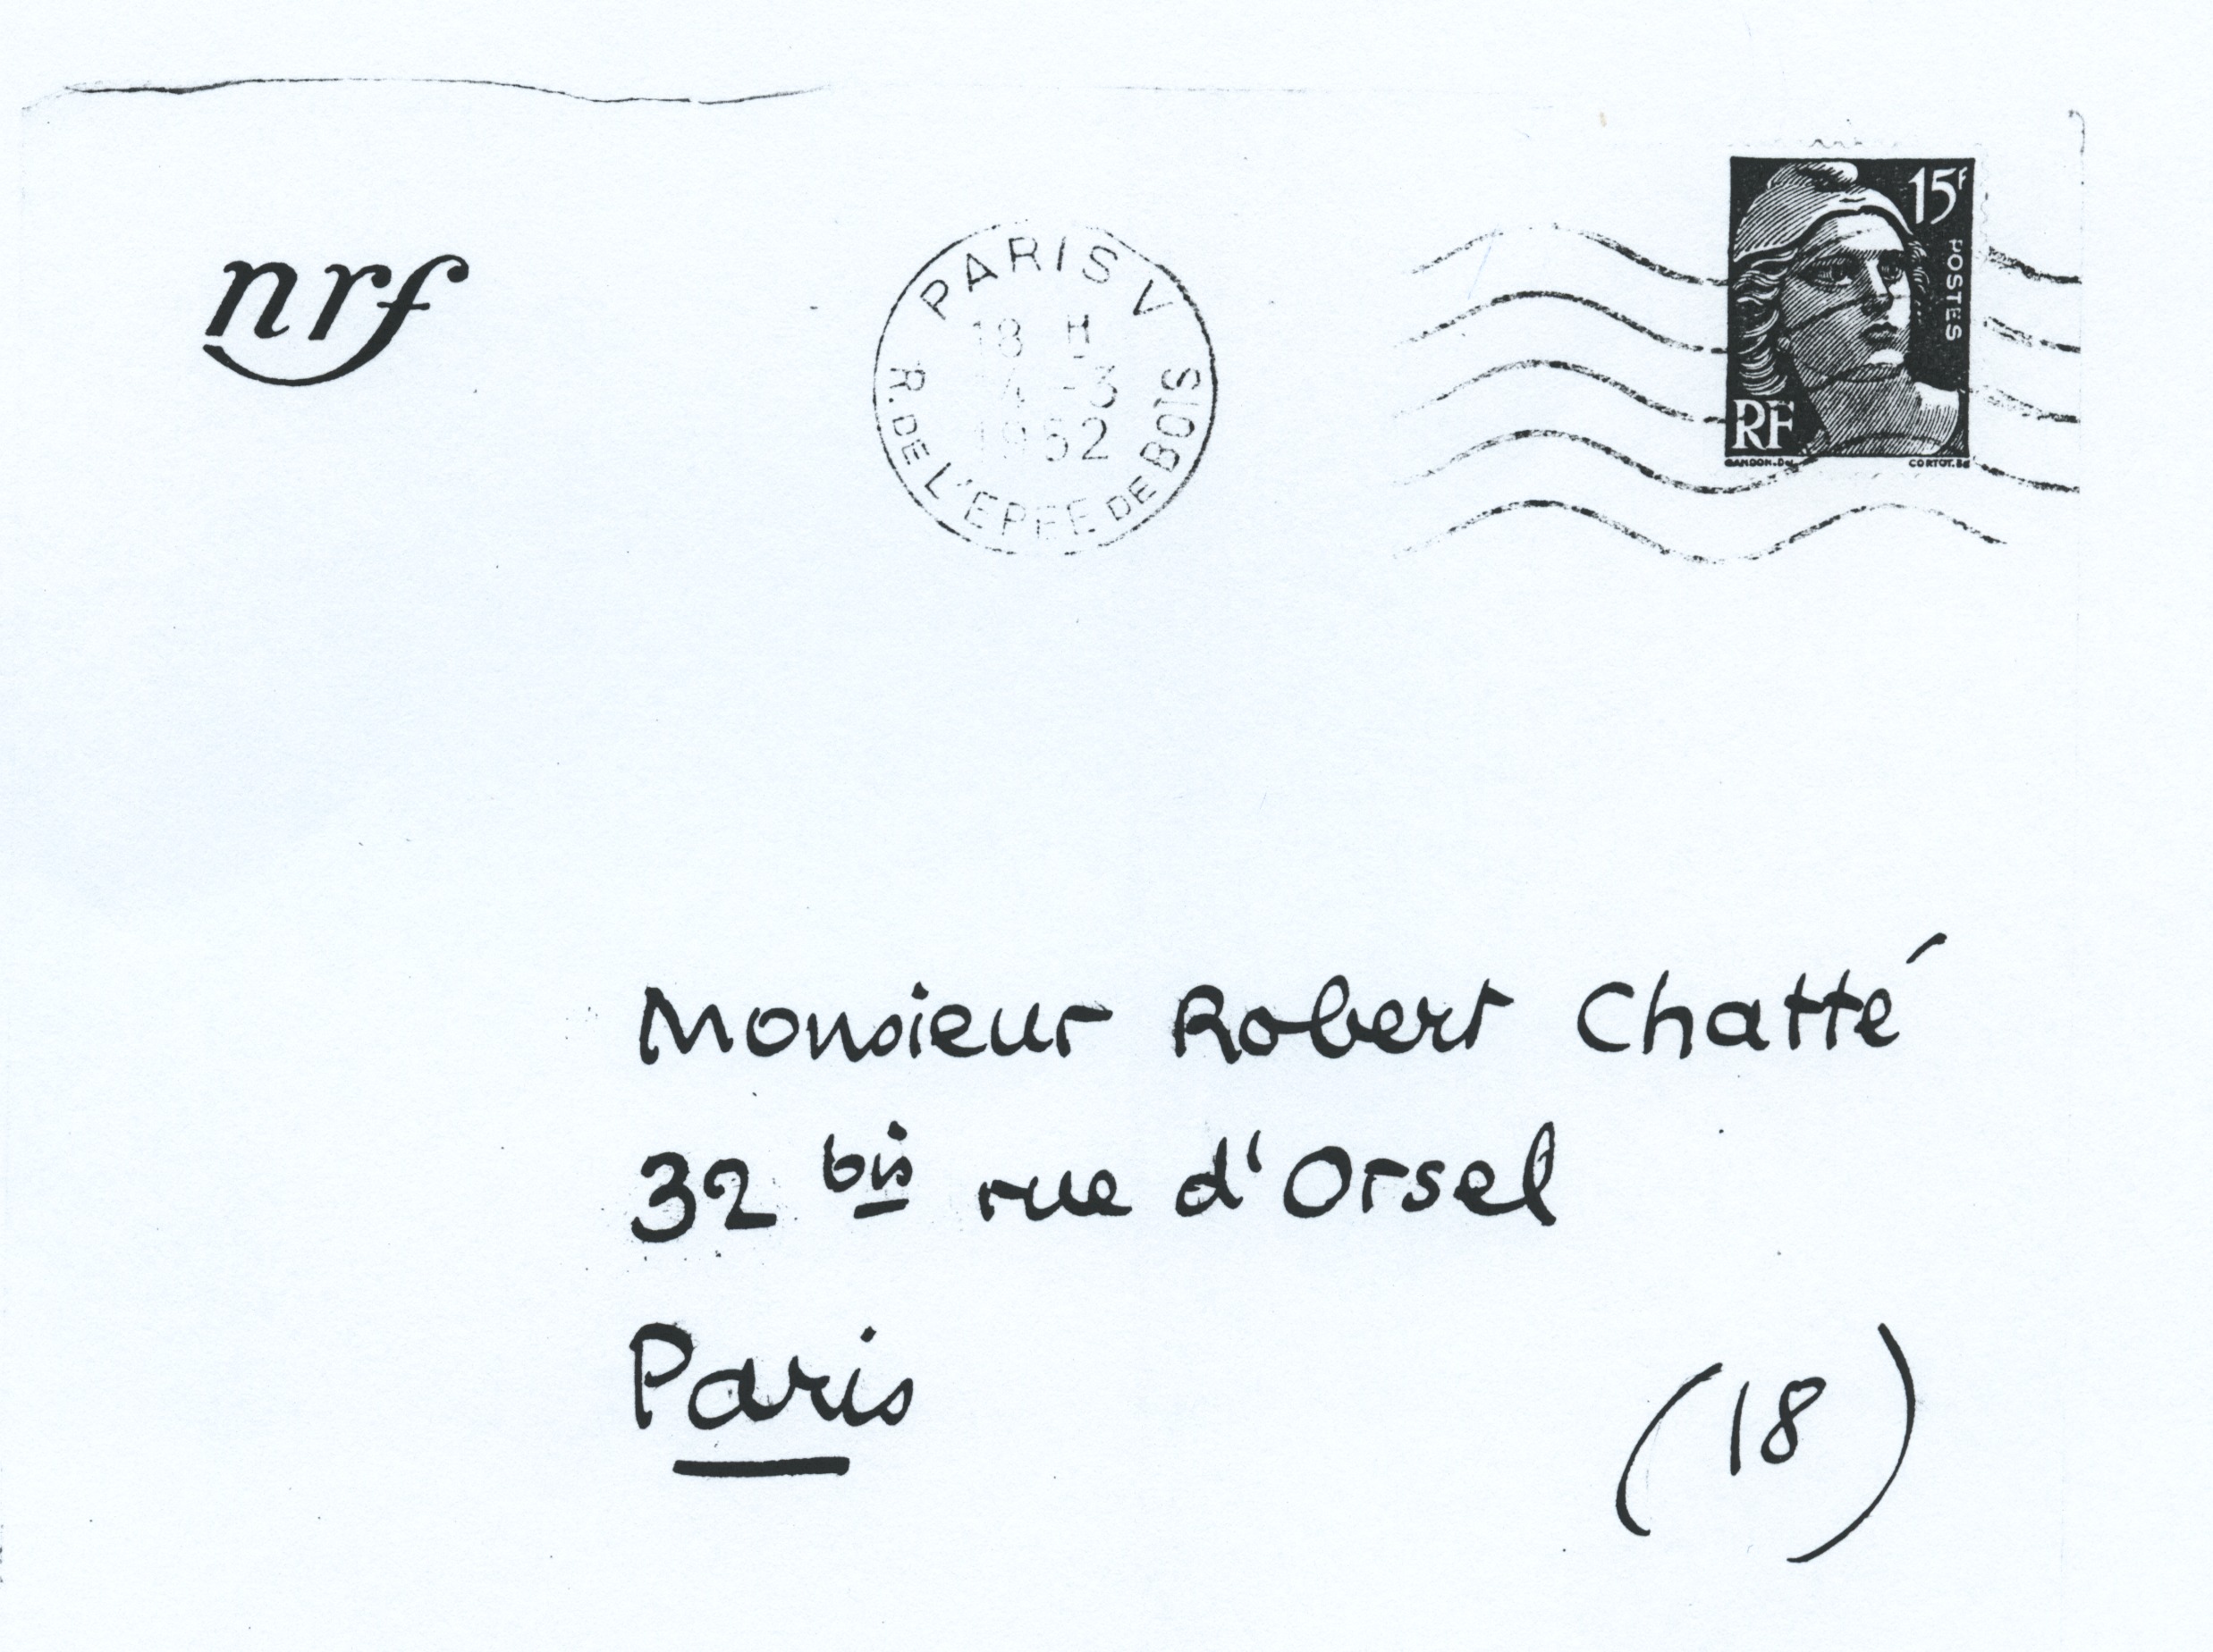 nrf
PARIS V
18 H
4 -3
1952
R. DE L'EPEE DE BOIS
15F
POSTES
RF
GANDON. Del.
CORTOT. Sc
Monsieur Robert Chatté
32 bis rue d'Orsel
Paris
(18)